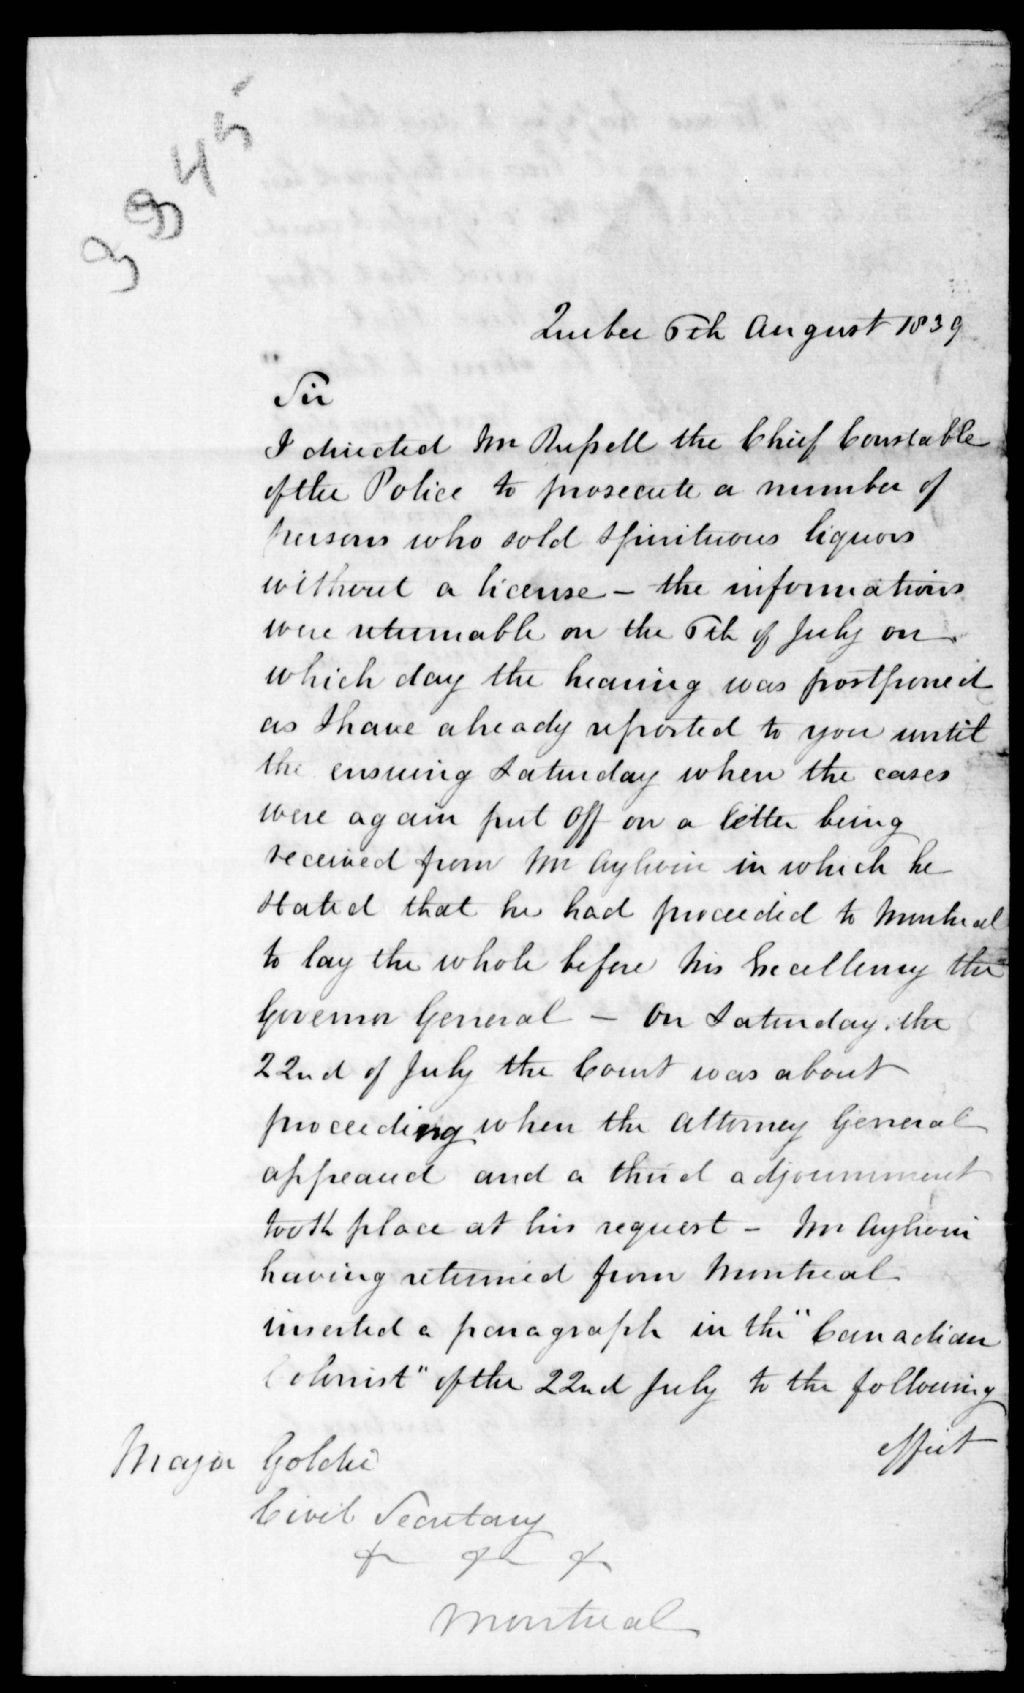 3345
Quebec 6th August 1839
Sir
I directed Mr Russell the Chief Constable
of the Police to prosecute a number of
persons who sold spirituous liquors
without a license – the informations
were returnable on the 6th of July on
which day the hearing was postponed
as I have already reported to you until
the ensuing Saturday when the cases
were again put off on a letter being
received from Mr Aylwin in which he
stated that he had proceeded to Montreal
to lay the whole before His Excellency the
Governor General – On Saturday the
22nd of July the Court was about
proceeding when the Attorney General
appeared and a third adjournment
took place at his request – Mr Aylwin
having returned from Montreal
inserted a paragraph in the "Canadian
Colonist" of the 22nd July to the following
effect
Major Goldie
Civil Secretary
&c &c &c
Montreal